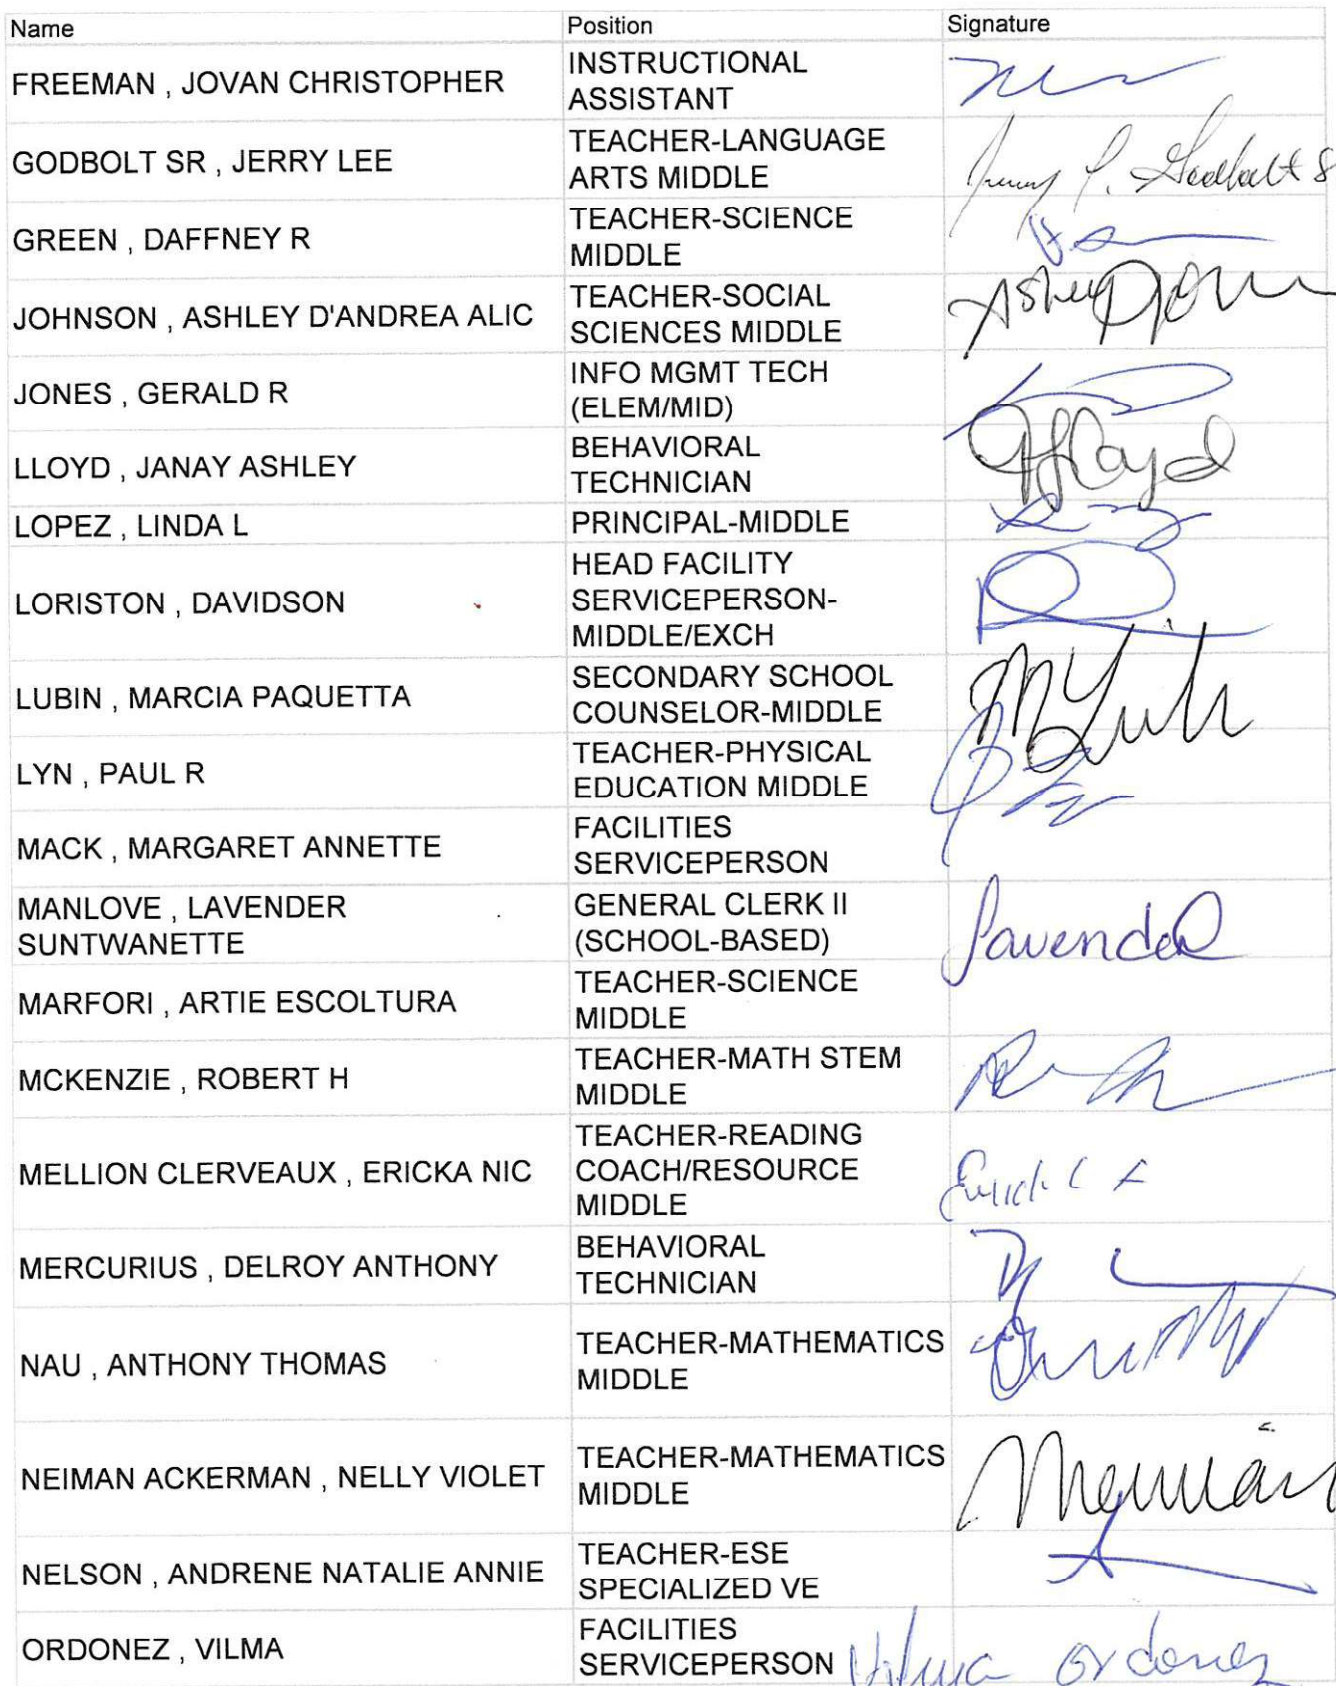 Name Position Signature
FREEMAN , JOVAN CHRISTOPHER INSTRUCTIONAL
ASSISTANT
GODBOLT SR , JERRY LEE TEACHER-LANGUAGE
ARTS MIDDLE
Jerry L. Godbolt S
GREEN , DAFFNEY R TEACHER-SCIENCE
MIDDLE
JOHNSON , ASHLEY D'ANDREA ALIC TEACHER-SOCIAL
SCIENCES MIDDLE
Ashley
JONES , GERALD R INFO MGMT TECH
(ELEM/MID)
LLOYD , JANAY ASHLEY BEHAVIORAL
TECHNICIAN
Lloyd
LOPEZ , LINDA L PRINCIPAL-MIDDLE
LORISTON , DAVIDSON HEAD FACILITY
SERVICEPERSON-
MIDDLE/EXCH
LUBIN , MARCIA PAQUETTA SECONDARY SCHOOL
COUNSELOR-MIDDLE
LYN , PAUL R TEACHER-PHYSICAL
EDUCATION MIDDLE
MACK , MARGARET ANNETTE FACILITIES
SERVICEPERSON
MANLOVE , LAVENDER
SUNTWANETTE
GENERAL CLERK II
(SCHOOL-BASED)
Lavender
MARFORI , ARTIE ESCOLTURA TEACHER-SCIENCE
MIDDLE
MCKENZIE , ROBERT H TEACHER-MATH STEM
MIDDLE
MELLION CLERVEAUX , ERICKA NIC TEACHER-READING
COACH/RESOURCE
MIDDLE
MERCURIUS , DELROY ANTHONY BEHAVIORAL
TECHNICIAN
NAU , ANTHONY THOMAS TEACHER-MATHEMATICS
MIDDLE
NEIMAN ACKERMAN , NELLY VIOLET TEACHER-MATHEMATICS
MIDDLE
NELSON , ANDRENE NATALIE ANNIE TEACHER-ESE
SPECIALIZED VE
ORDONEZ , VILMA FACILITIES
SERVICEPERSON
Vilma Ordonez